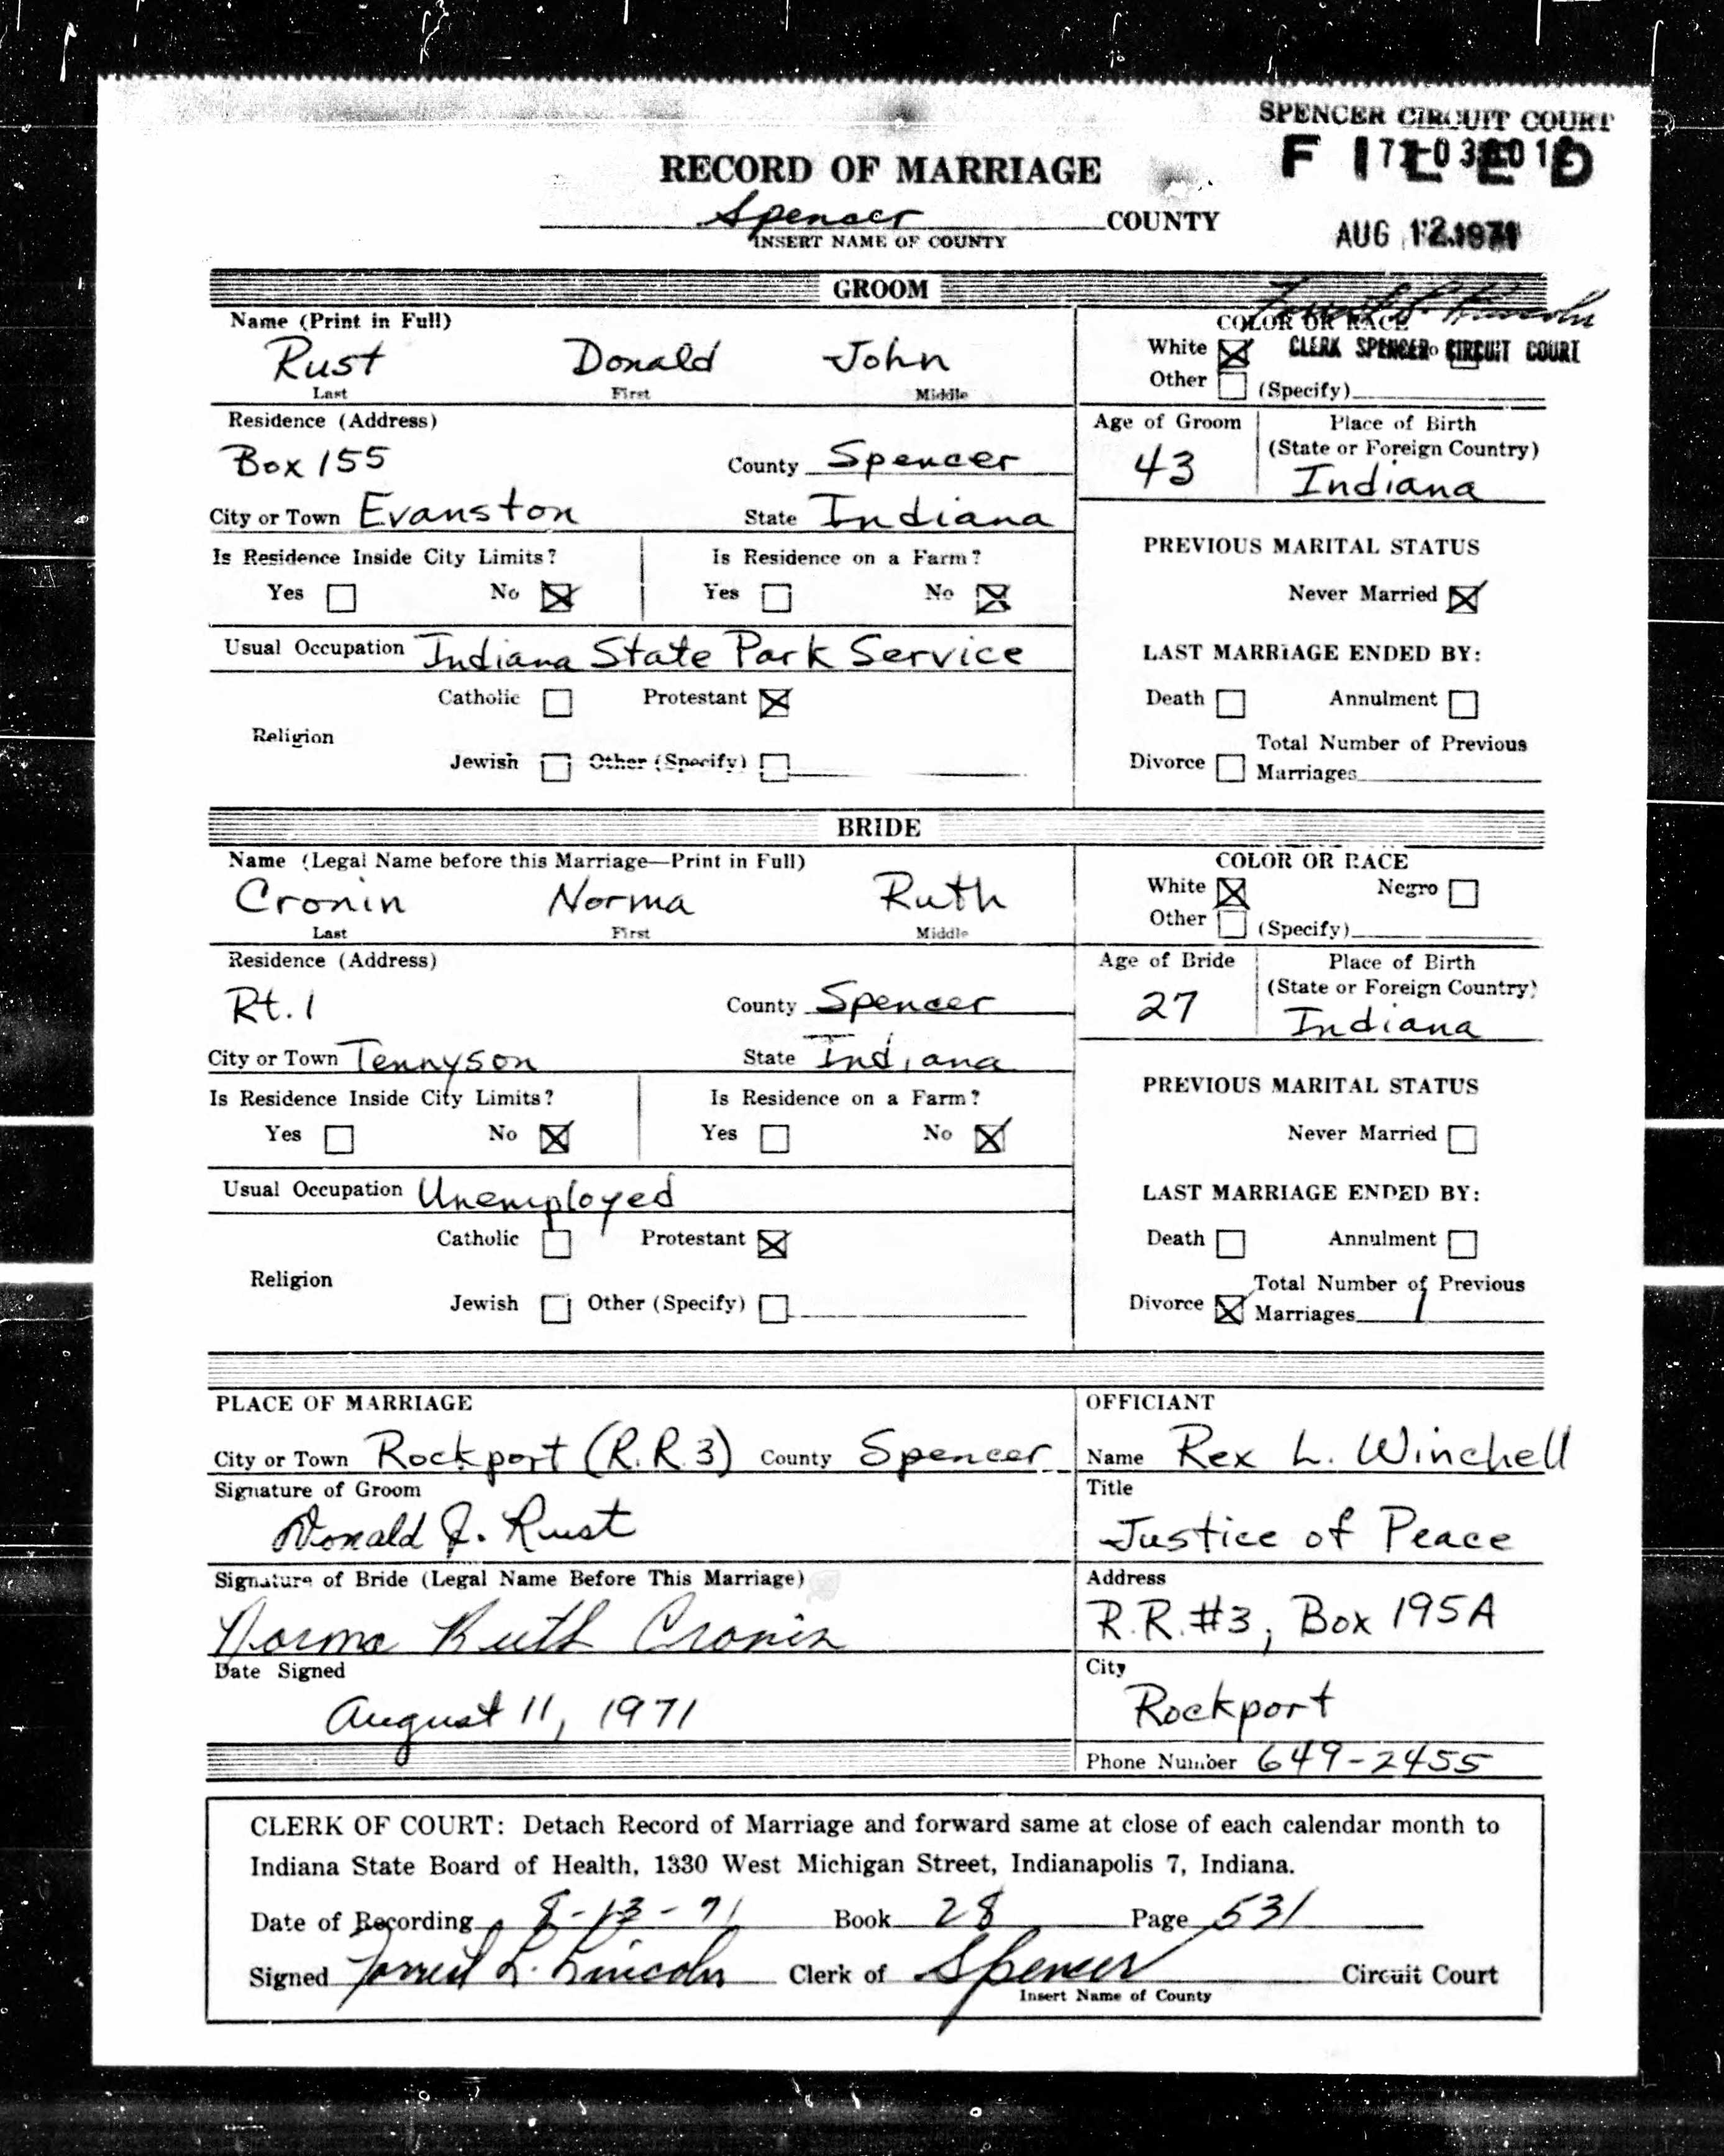 SPENCER CIRCUIT COURT
FILED
RECORD OF MARRIAGE
Spencer COUNTY
INSERT NAME OF COUNTY
AUG 12 1971
GROOM
Name (Print in Full)
Rust Donald John
Last First Middle
COLOR OR RACE
White ☒
CLERK SPENCER CIRCUIT COURT
Other ☐ (Specify)
Residence (Address)
Box 155 County Spencer
City or Town Evanston State Indiana
Age of Groom
43
Place of Birth
(State or Foreign Country)
Indiana
Is Residence Inside City Limits? Is Residence on a Farm?
Yes ☐ No ☒ Yes ☐ No ☒
PREVIOUS MARITAL STATUS
Never Married ☒
Usual Occupation Indiana State Park Service
LAST MARRIAGE ENDED BY:
Catholic ☐ Protestant ☒
Death ☐ Annulment ☐
Religion
Jewish ☐ Other (Specify) ☐
Divorce ☐ Total Number of Previous
Marriages
BRIDE
Name (Legal Name before this Marriage—Print in Full)
Cronin Norma Ruth
Last First Middle
COLOR OR RACE
White ☒ Negro ☐
Other ☐ (Specify)
Residence (Address)
Rt. 1 County Spencer
City or Town Tennyson State Indiana
Age of Bride
27
Place of Birth
(State or Foreign Country)
Indiana
Is Residence Inside City Limits? Is Residence on a Farm?
Yes ☐ No ☒ Yes ☐ No ☒
PREVIOUS MARITAL STATUS
Never Married ☐
Usual Occupation Unemployed
LAST MARRIAGE ENDED BY:
Catholic ☐ Protestant ☒
Death ☐ Annulment ☐
Religion
Jewish ☐ Other (Specify) ☐
Divorce ☒ Total Number of Previous
Marriages 1
PLACE OF MARRIAGE
City or Town Rockport (R.R.3) County Spencer
Signature of Groom
Donald J. Rust
Signature of Bride (Legal Name Before This Marriage)
Norma Ruth Cronin
Date Signed
August 11, 1971
OFFICIANT
Name Rex L. Winchell
Title
Justice of Peace
Address
R.R.#3, Box 195A
City
Rockport
Phone Number 649-2455
CLERK OF COURT: Detach Record of Marriage and forward same at close of each calendar month to
Indiana State Board of Health, 1330 West Michigan Street, Indianapolis 7, Indiana.
Date of Recording 8-13-71 Book 28 Page 531
Signed Forrest L. Lincoln Clerk of Spencer Circuit Court
Insert Name of County